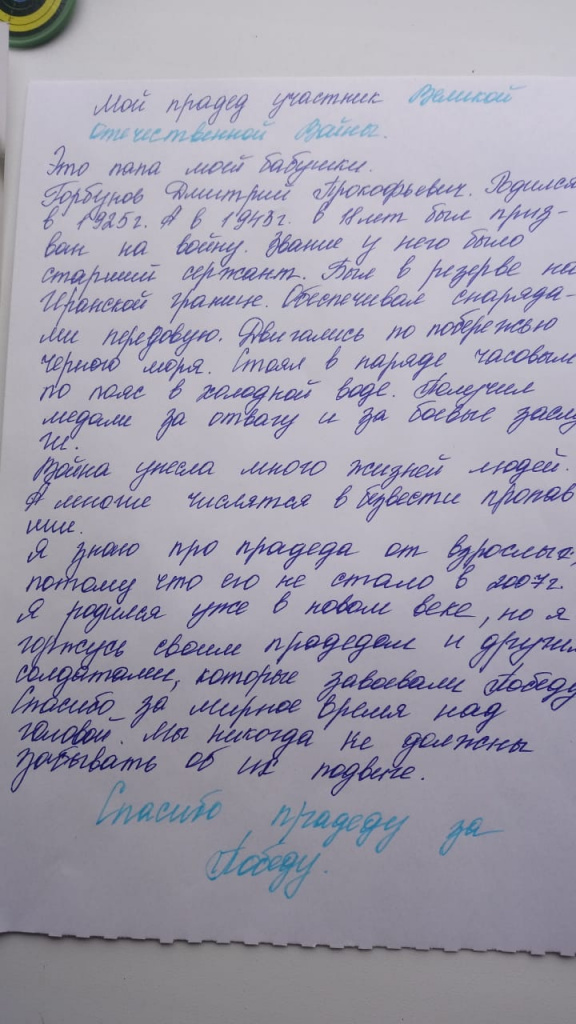 Мой прадед участник Великой
Отечественной Войны.
Это папа моей бабушки.
Горбунов Дмитрий Прокофьевич. Родился
в 1925г. А в 1943г. в 18лет был приз-
ван на войну. Звание у него было
старший сержант. Был в резерве на
Иранской границ. Обеспечивал снаряда-
ми передовую. Двигались по побережью
черного моря. Стоял в параде часовым
по пояс в холодной воде. Получил
медали за отвагу и за боевые заслу
ги.
Война унесла много жизней людей.
А многие числятся в безвести пропав
шие.
Я знаю про прадеда от взрослых,
потому что его не стало в 2007г.
Я родился уже в новом веке, но я
горжусь своим прадедом и другим
солдатами, которые завоевали Победу
Спасибо за мирное время над
головой. Мы никогда не должны
забывать об их подвиге.
Спасибо прадеду за
Победу.